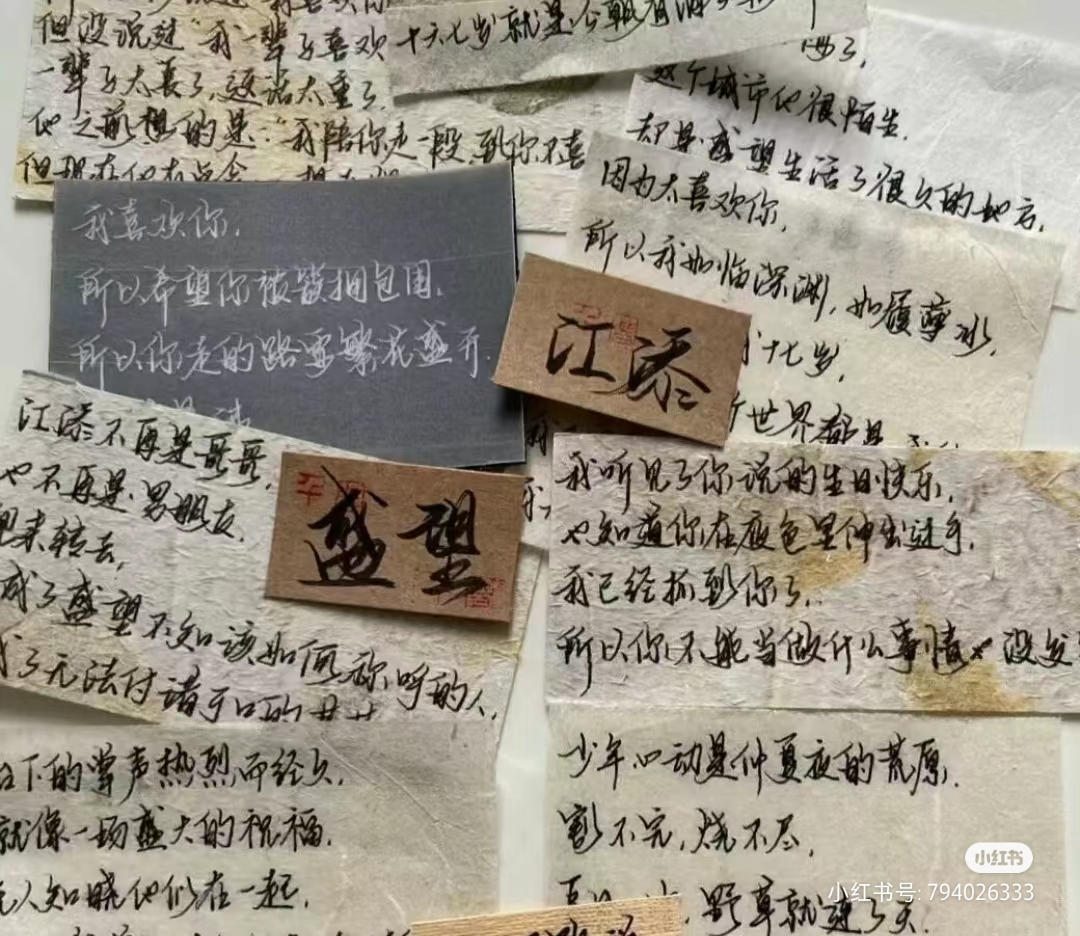 但没说过“我一辈子喜欢
一辈子太长了,这话太重了
他之前想的是:“我陪你走一段,到你不喜
但现在他有点贪
十六七岁就是
这个城市他很陌生,
却是盛望生活了很久的地方,
因为太喜欢你,
所以我如临深渊,如履薄冰,
十七岁,
世界都是
我喜欢你,
所以希望你被簇拥包围,
所以你走的路要繁花盛开,
江添
江添不再是哥哥,
也不再是男朋友,
兜来转去,
成了盛望不知该如何称呼的人,
成了无法付诸于口的某某
盛望
我听见了你说的生日快乐,
也知道你在夜色里伸出过手,
我已经抓到你了,
所以你不能当做什么事情也没发
台下的掌声热烈而经久,
就像一场盛大的祝福,
无人知晓他们在一起,
少年心动是仲夏夜的荒原,
割不完,烧不尽,
野草就连了天,
小红书
小红书号: 794026333